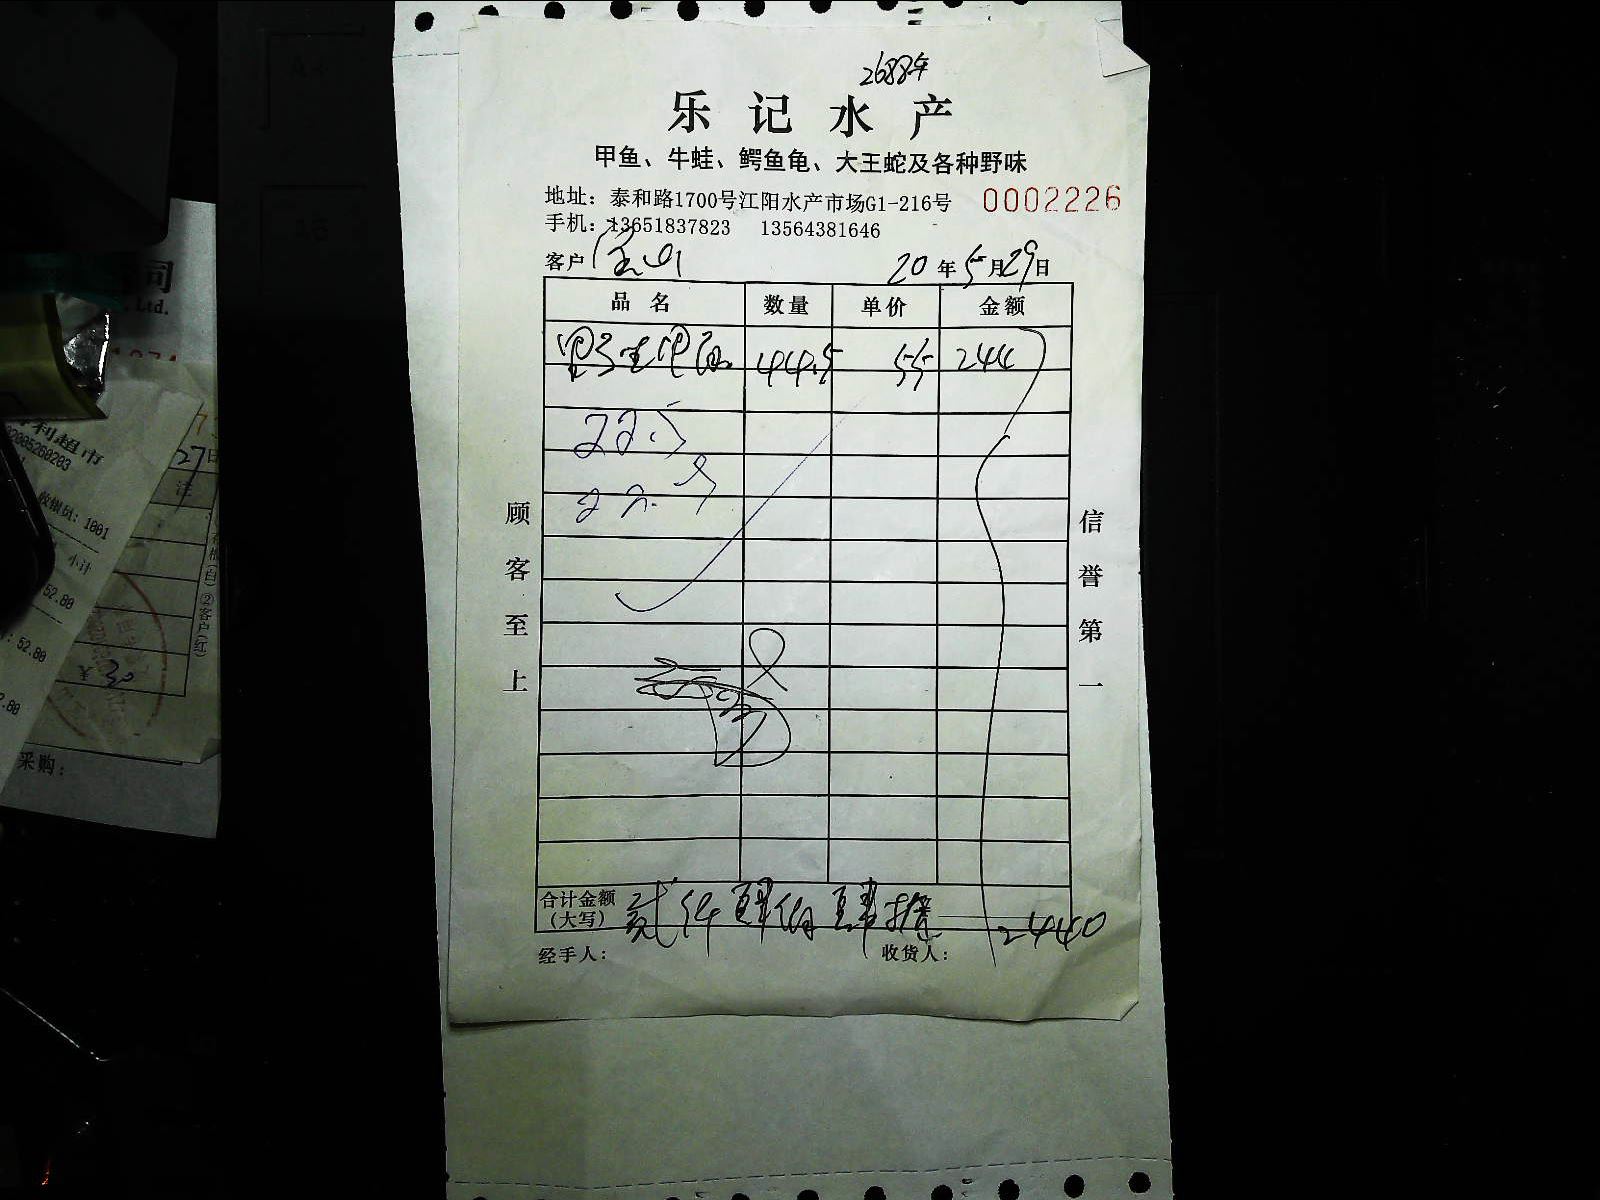 乐记水产
甲鱼、牛蛙、鳄鱼龟、大王蛇及各种野味
地址：泰和路1700号江阳水产市场G1-216号 0002226
手机：13651837823 13564381646
客户 宝山 20年5月29日
品名 数量 单价 金额
44.5 55 244
22.
22.
顾客至上
信誉第一
合计金额
（大写） 贰仟肆佰肆拾 2440
经手人： 收货人：
同
Ltd.
利超市
02005260203
27日
注
收银员：1001
小计
52.80
52.80
2.80
(白)②客户(红)
¥ 30
采购：